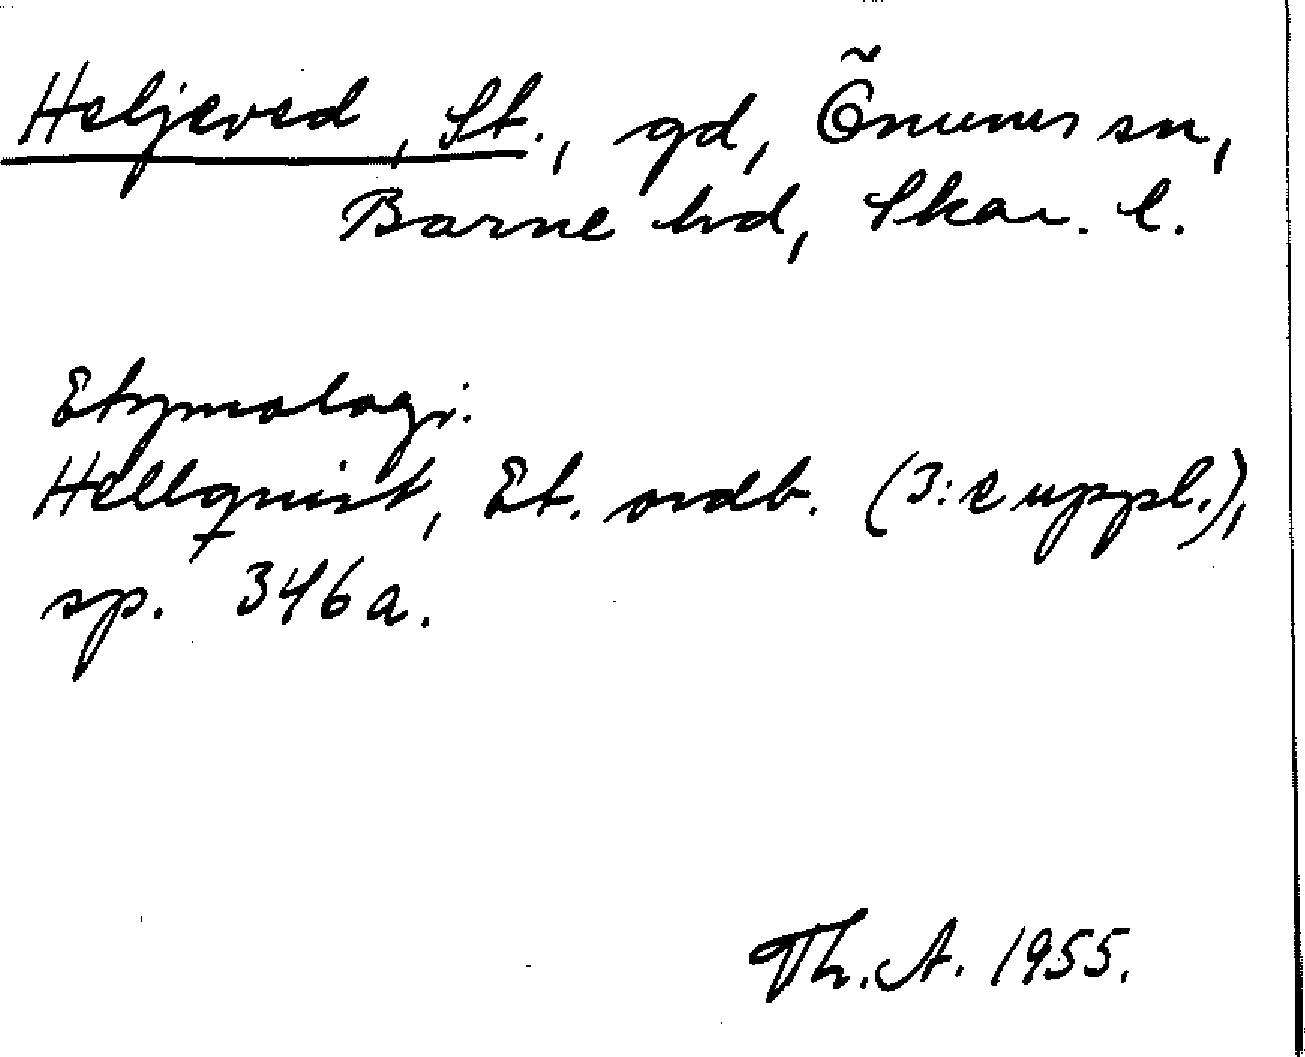 Heljeved, St., gd, Önums sn,
Barne hd, Skar. l.
Etymologi:
Hellquist, Et. ordb. (3:e uppl.),
sp. 346a.
Th. A. 1955.